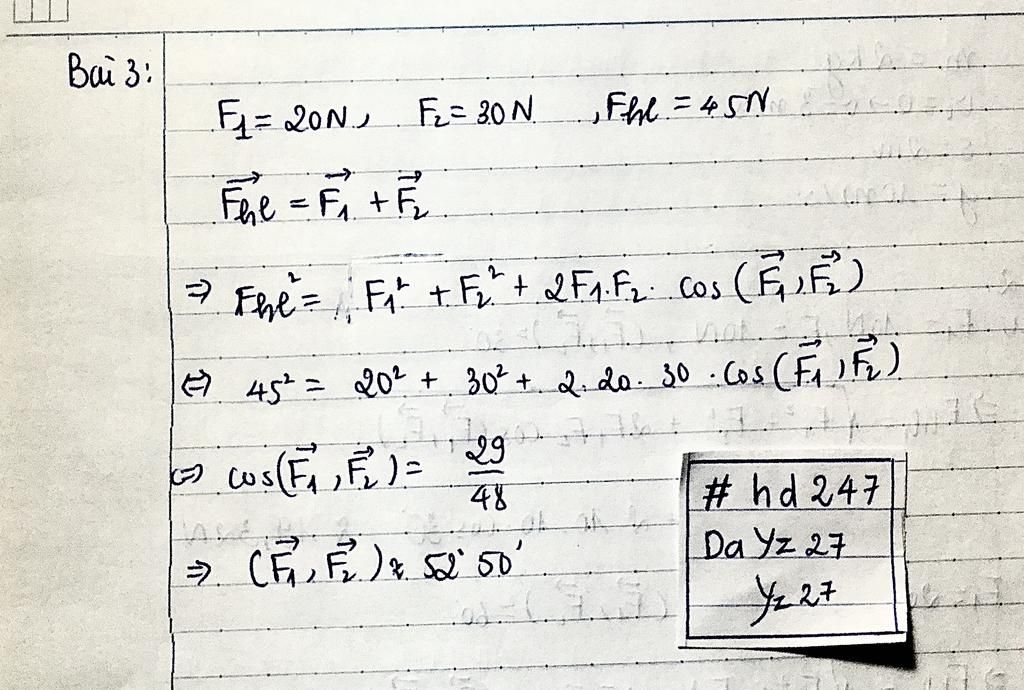 Bài 3:
F₁ = 20N, F₂ = 30N, Fhl = 45N
F⃗hl = F⃗₁ + F⃗₂
⇒ Fhl² = F₁² + F₂² + 2F₁.F₂. cos(F⃗₁, F⃗₂)
⇔ 45² = 20² + 30² + 2.20.30.cos(F⃗₁, F⃗₂)
⇔ cos(F⃗₁, F⃗₂) = 29/48
⇒ (F⃗₁, F⃗₂) ≈ 52°50'
# hd 247
Da Yz 27
Yz 27